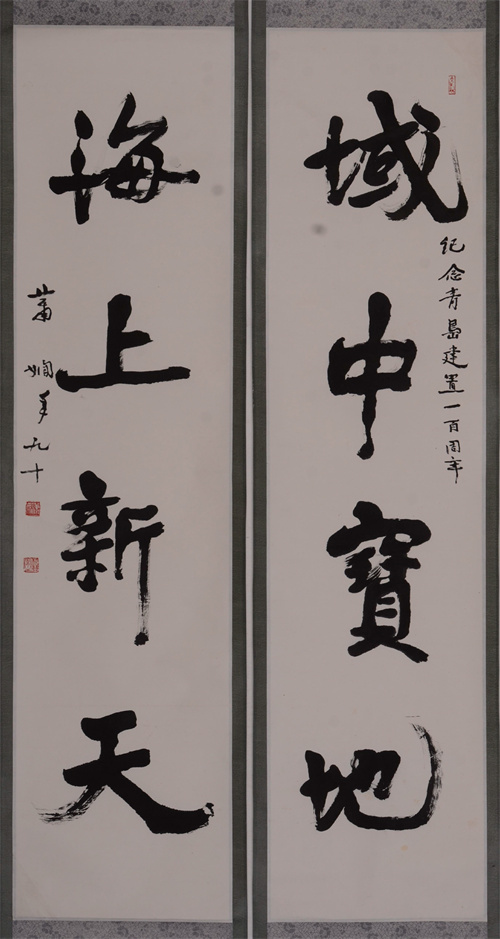 域中寶地
纪念青島建置一百周年
海上新天
萧娴年九十